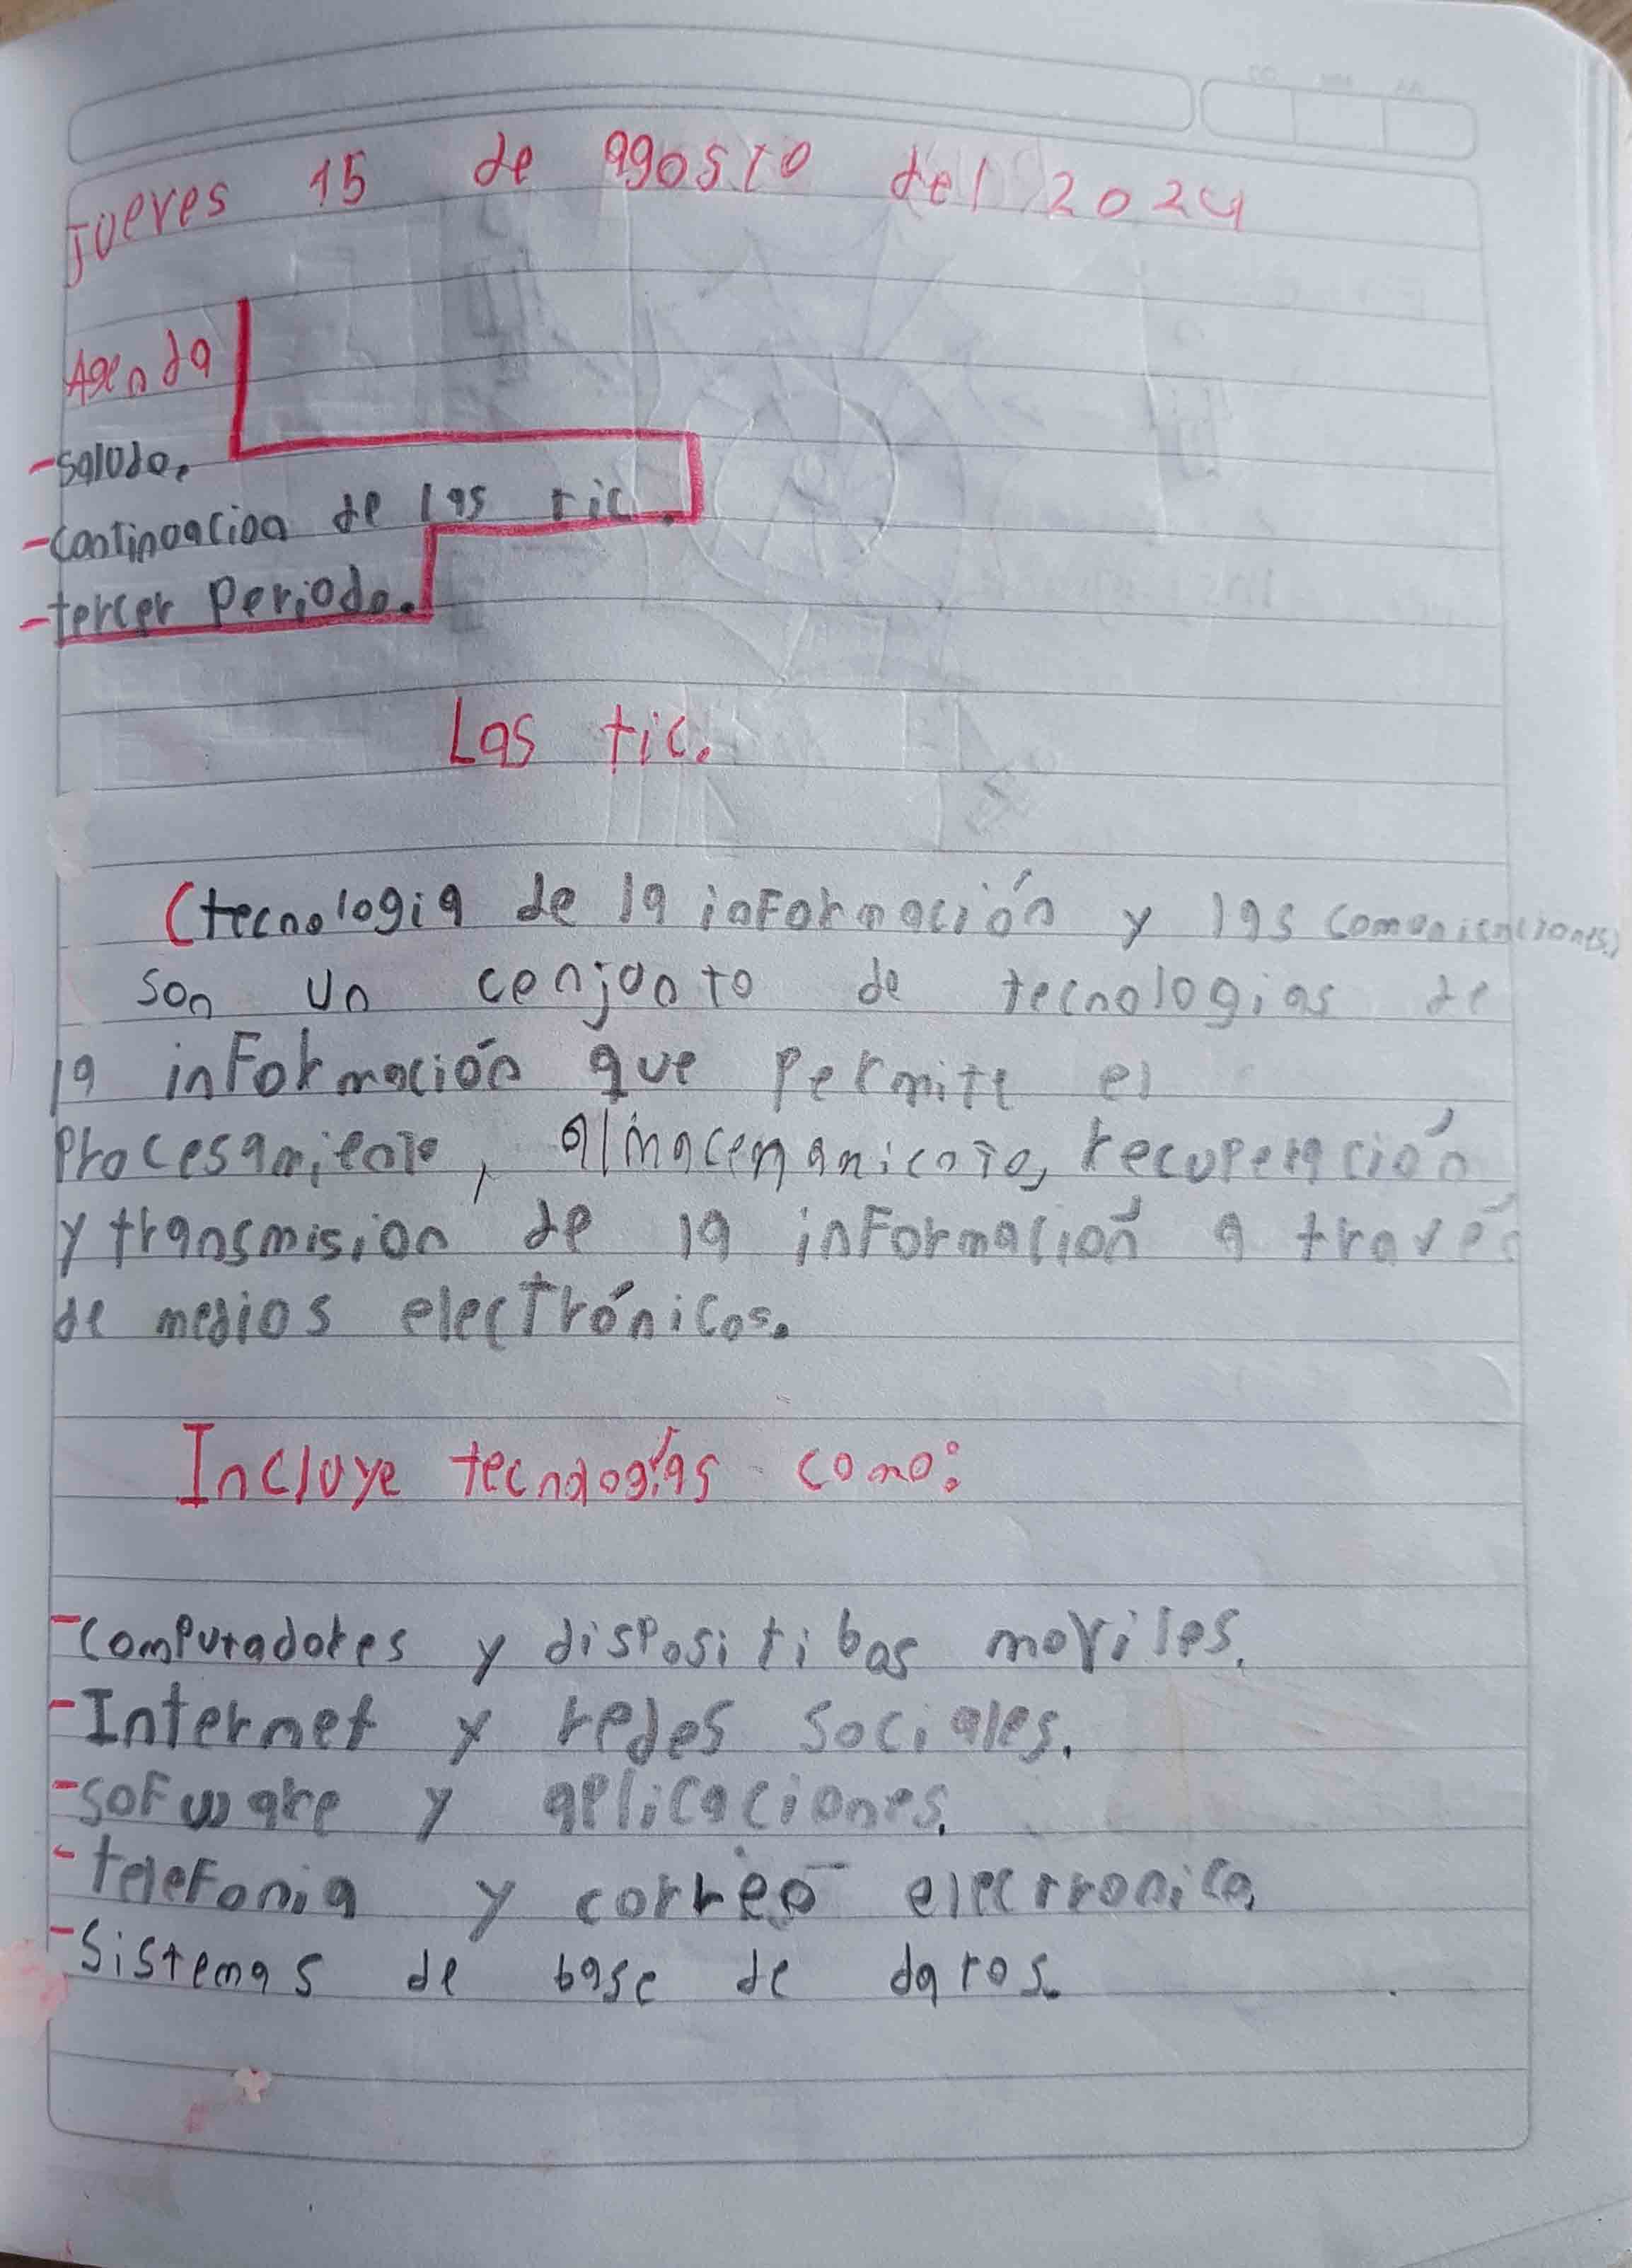 Jueves 15 de agosto del 2024
Agenda
-saludo.
-continuacion de las tic.
-tercer periodo.
Las tic.
(tecnologia de la información y las comunicaciones)
son un conjunto de tecnologias de
la información que permite el
procesamiento, almacenamiento, recuperación
y transmision de la información a través
de medios electrónicos.
Incluye tecnologías como:
-computadores y dispositibos moviles.
-Internet y redes sociales.
-sofware y aplicaciones.
-telefonia y correo electronico.
-sistemas de base de datos.